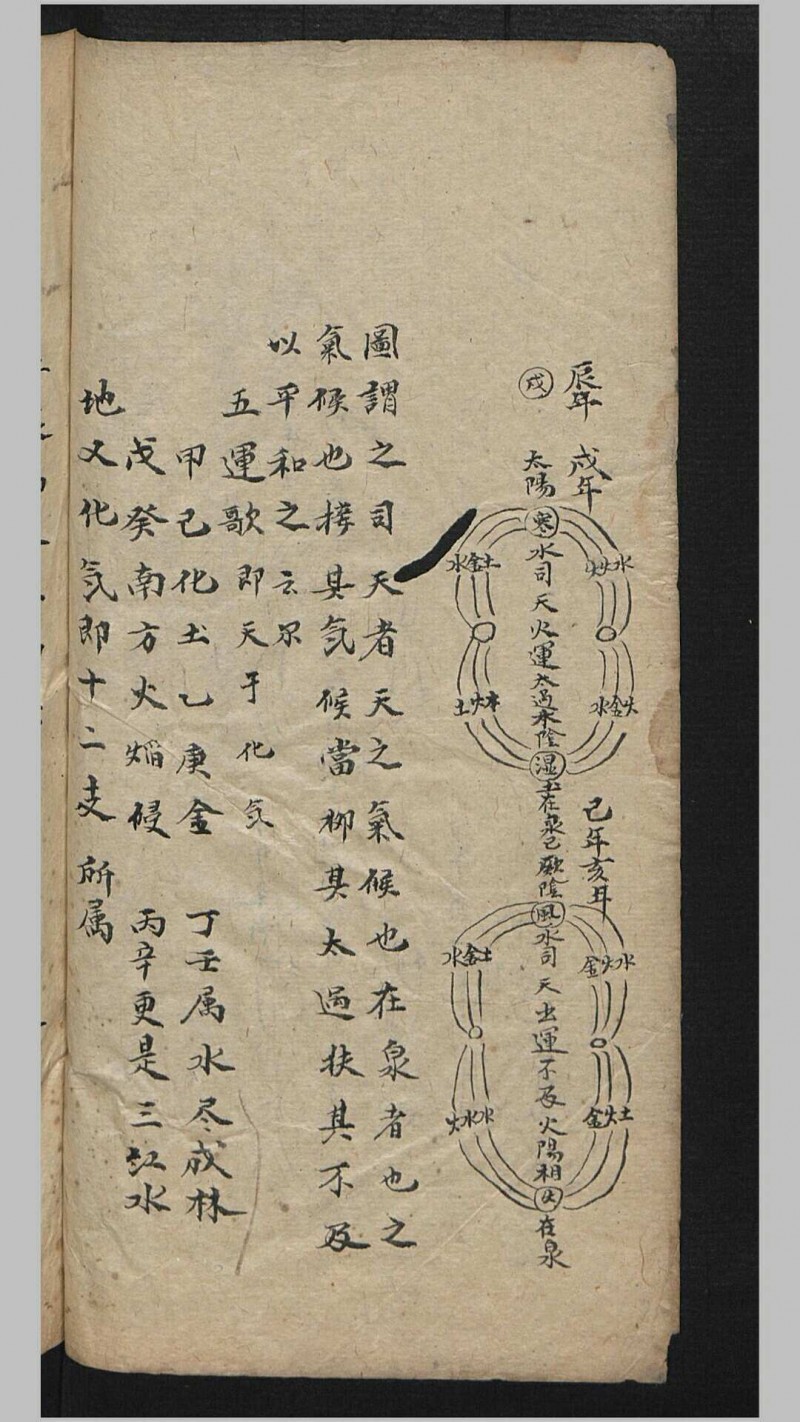 辰年 戌年
戌
太陽寒水司天火運太过太陰湿土在泉
水火火
土金水
火金水
木火土
巳年亥年
巳厥陰風木司天土運不及火陽相火在泉
水火金
土金水
土火金
圖謂之司天者天之氣候也在泉者也之
氣候也揆其氣候當抑其太過扶其不及
以平和之云尔
五運歌即天干化氣
甲己化土乙庚金 丁壬属木尽成林
戊癸南方火焰侵 丙辛更是三江水
地又化氣即十二支所属